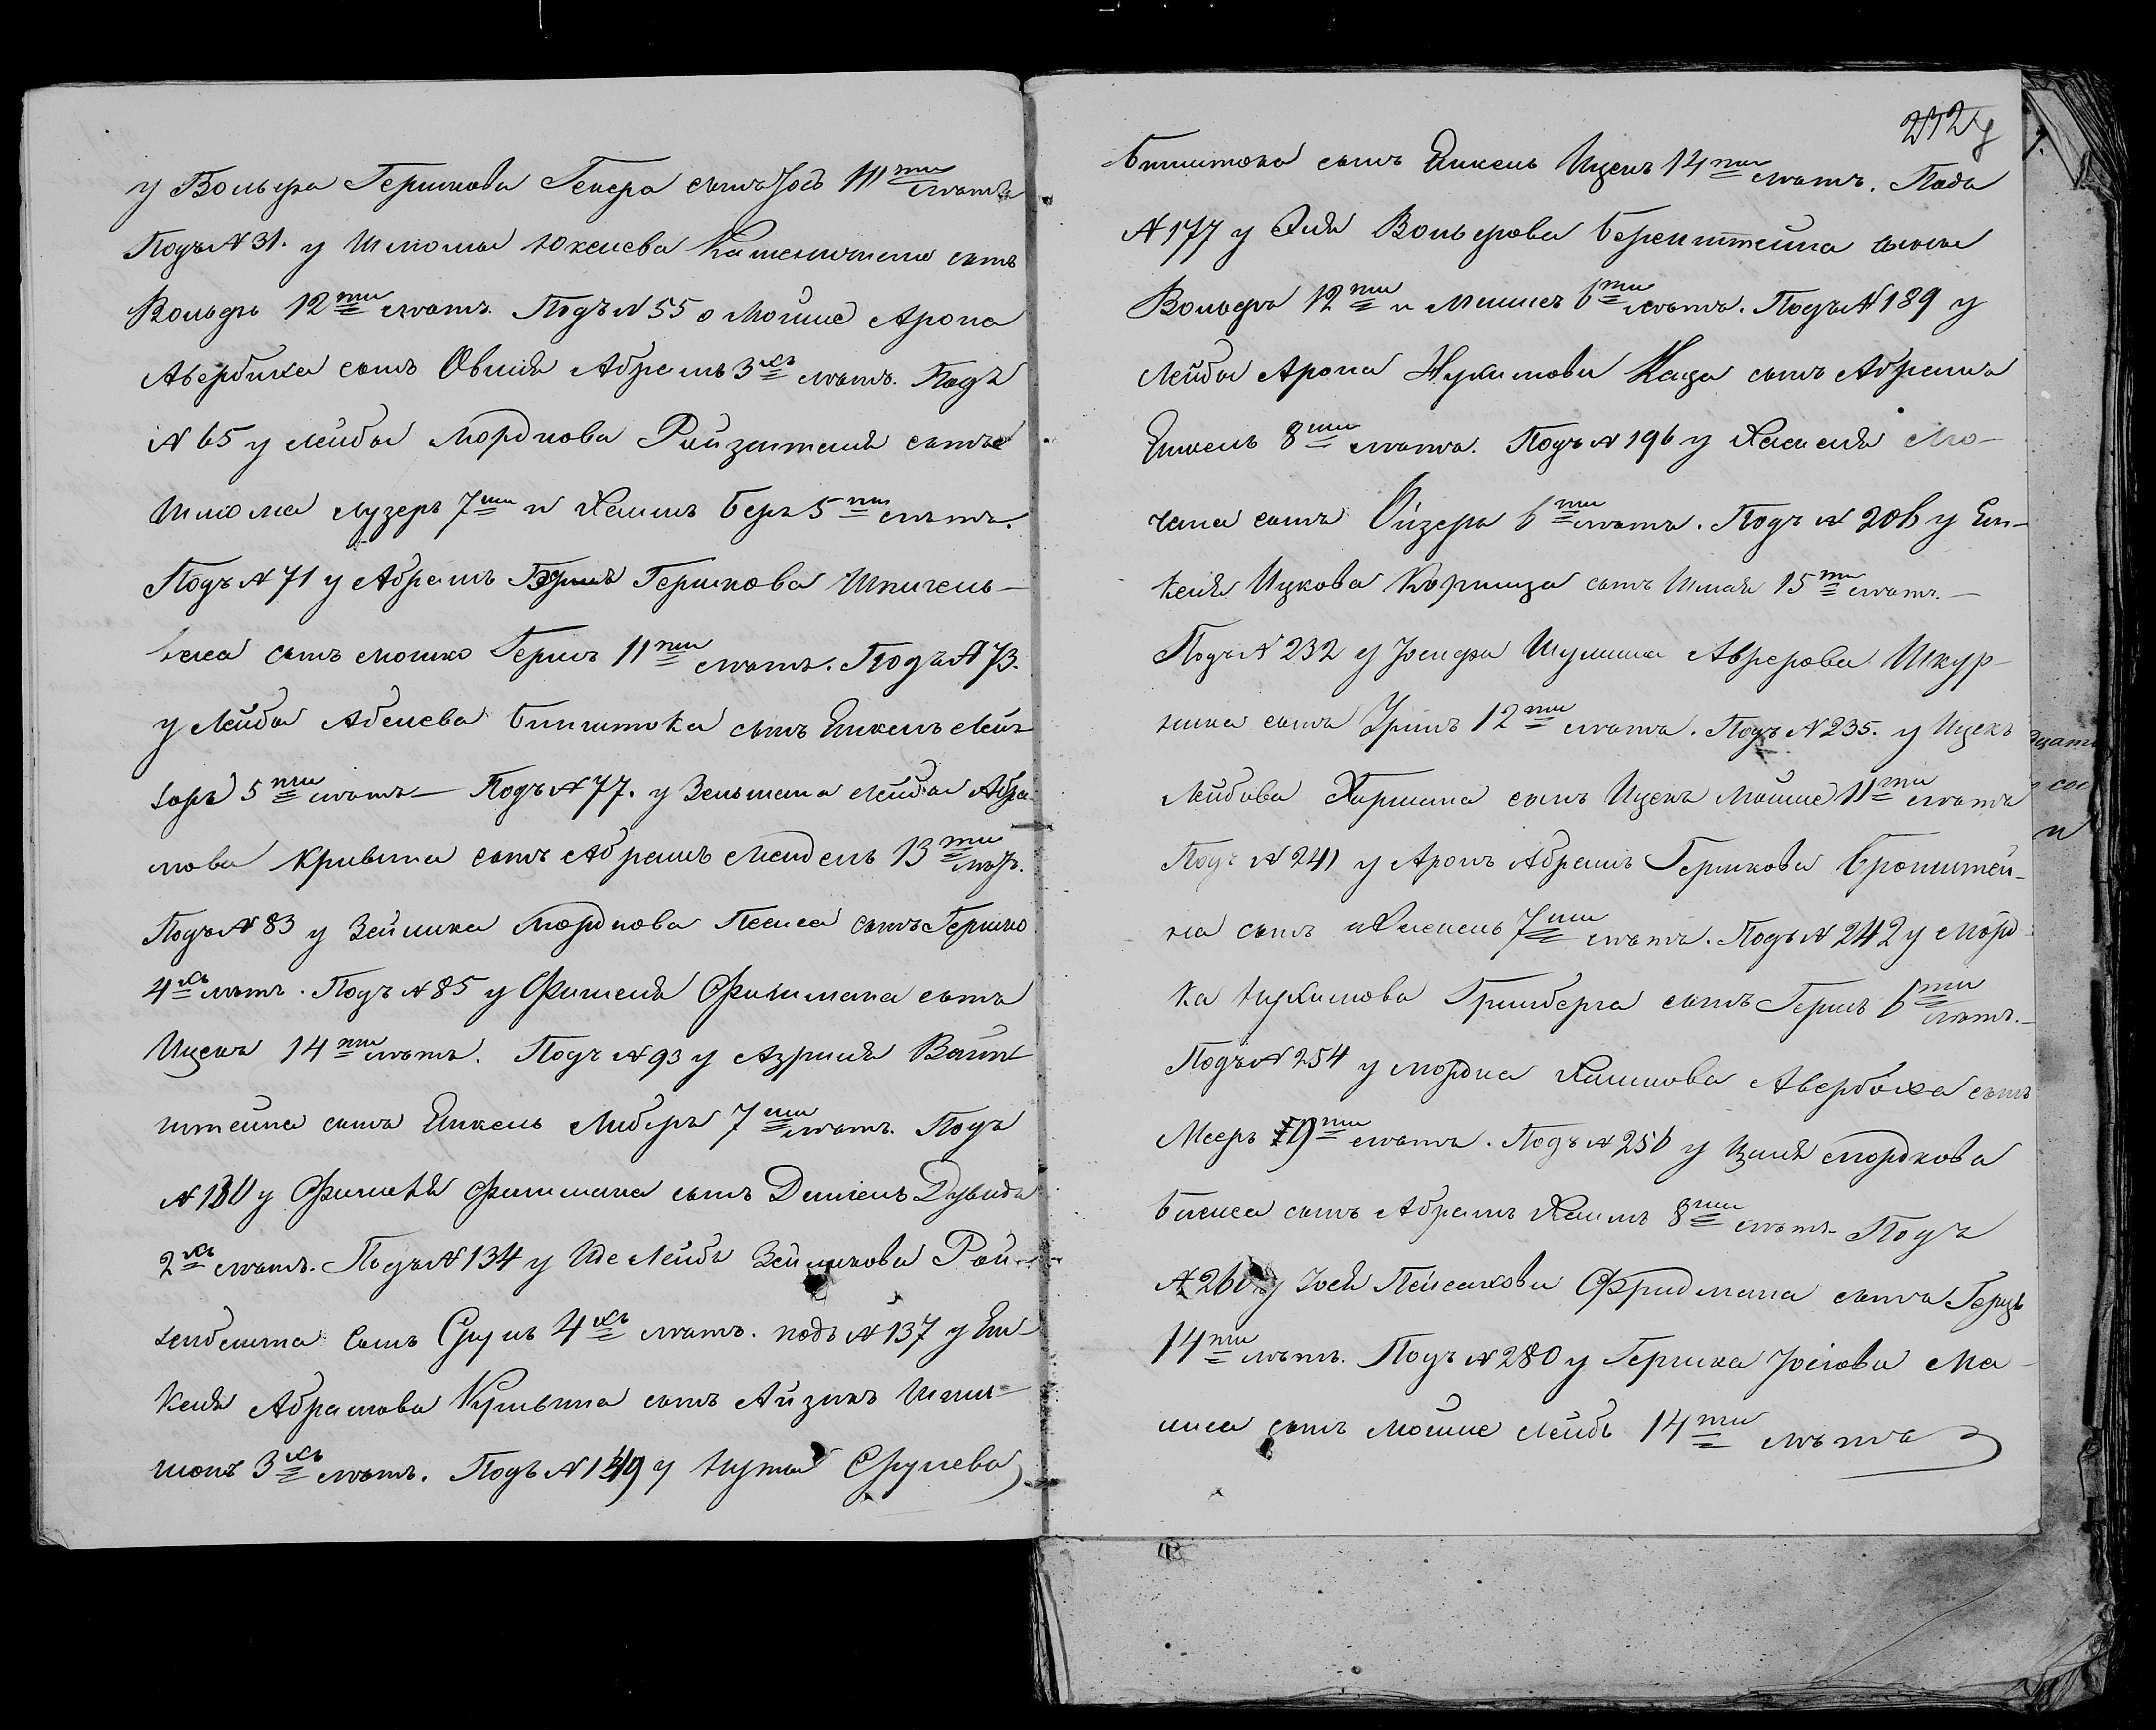 у Вольфа Гершкова Гекера сынъ Іось 11 ти лѣтъ
Подъ N 31. у Шлиомы Юкелева Каменичнаго сынъ
Вольфъ 12ти лѣтъ. Подъ N 55 о Мошие Арона
Авербуха сынъ Овшія Абрамъ 3хъ лѣтъ. Подъ
N 65 у Лейбы Мордкова сыны
Шлиома Лузеръ 7ми и Хаимъ Беръ 5ти лѣтъ.
Подъ N 71 у Абрамъ Гершъ Гершкова Шпигель-
сынъ Мошко Гершъ 11ти лѣтъ. Подъ N 73.
у Лейбы Абелева Бинштока сынъ Янкель Лей-
зоръ 5ти лѣтъ — Подъ N 77. у Зельмана Лейбы Абра-
мова Кривина сынъ Абрамъ Мендель 13ти лѣтъ.
Подъ N 83 у Зейлика Мордкова сынъ Гершко
4хъ лѣтъ. Подъ N 85 у Фишеля Фишмана сынъ
Ицекъ 14ти лѣтъ. Подъ N 93 у Азріиля Вайн-
штейна сынъ Янкель Либеръ 7ми лѣтъ. Подъ
N 130 у Фишеля Фишмана сынъ Даніель Дувидъ
2хъ лѣтъ. Подъ N 134 у Иде Лейбъ Зейликова Рой-
сынъ Сруль 4хъ лѣтъ. подъ N 137 у Ян-
келя Абрамова сынъ Айзикъ Шли-
3хъ лѣтъ. Подъ N 149 у Нуты Срулева
232
Бинштока сынъ Янкель Ицекъ 14ти лѣтъ. Подъ
N 177 у Эля Вольфова Беренштейна сыны
Вольфъ 12ти и 6ти лѣтъ. Подъ N 189 у
Лейбы Арона Нухимова Каца сынъ Абрамъ
Янкель 8ми лѣтъ. Подъ N 196 у Хаскеля Мо-
чана сынъ Ойзеръ 6ти лѣтъ. Подъ N 206 у Ян-
келя Ицкова Коршица сынъ Шмая 15ти лѣтъ. —
Подъ N 232 у Іосифа Шулима Шкур-
ника сынъ Уринъ 12ти лѣтъ. Подъ N 235. у Ицекъ
Лейбова сынъ Ицекъ Мошие 11ти лѣтъ
Подъ N 241 у Аронъ Абрамъ Гершкова Бронштей-
на сынъ 7ми лѣтъ. Подъ N 242 у Морд-
ка Нухимова Гринберга сынъ Гершъ 6ти лѣтъ. —
Подъ N 254 у Мордка Хаимова Авербоха сынъ
Мееръ 9ти лѣтъ. Подъ N 256 у Мордкова
сынъ Абрамъ Хаимъ 8ми лѣтъ. Подъ
N 260 у Іоси Пейсахова Фридмана сынъ Герцъ
14ти лѣтъ. Подъ N 280 у Гершка Іосіова Ма-
сынъ Мошие Лейбъ 14ти лѣтъ